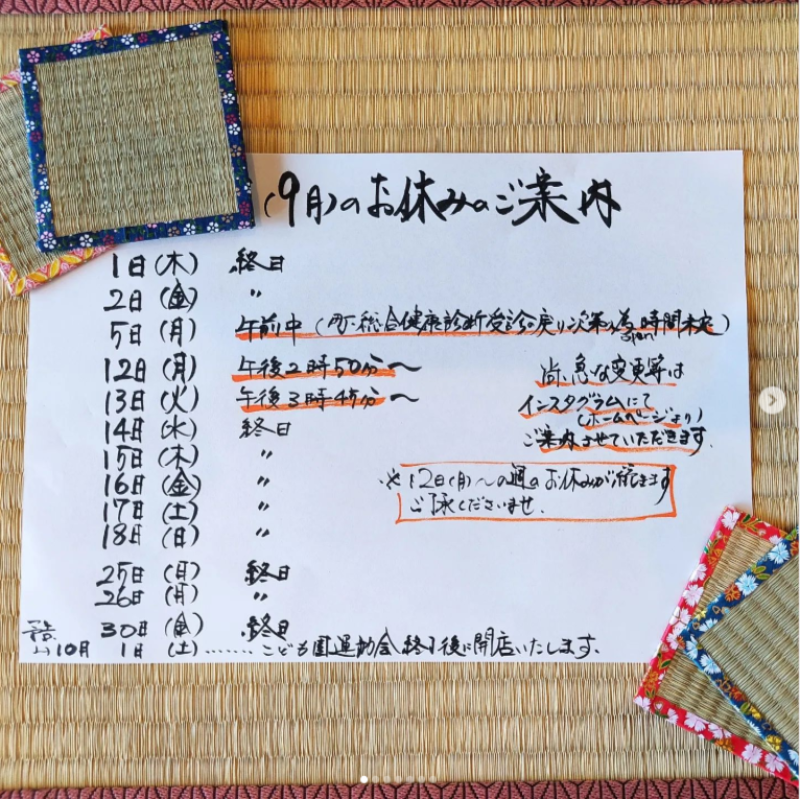 (9月)のお休みのご案内
1日(木) 終日
2日(金) 〃
5日(月) 午前中(町総合健康診断受診の戻り次第open為時間未定)
12日(月) 午後2時50分〜
13日(火) 午後3時45分〜
14日(水) 終日
15日(木) 〃
16日(金) 〃
17日(土) 〃
18日(日) 〃
25日(日) 終日
26日(月) 〃
30日(金) 終日
10月 1日(土)………こども園運動会終了後に開店いたします。
尚、急な変更等は
インスタグラムにて
(ホームページより)
ご案内させていただきます。
※12日(月)〜の週のお休みが
ご了承くださいませ。